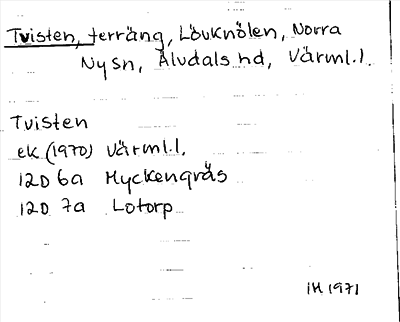 Tvisten, terräng, Lövknölen, Norra
Ny sn, Älvdals hd, Värml.l.
Tvisten
ek (1970) Värml.l.
12D 6a Myckengräs
12D 7a Lotorp
IH 1971